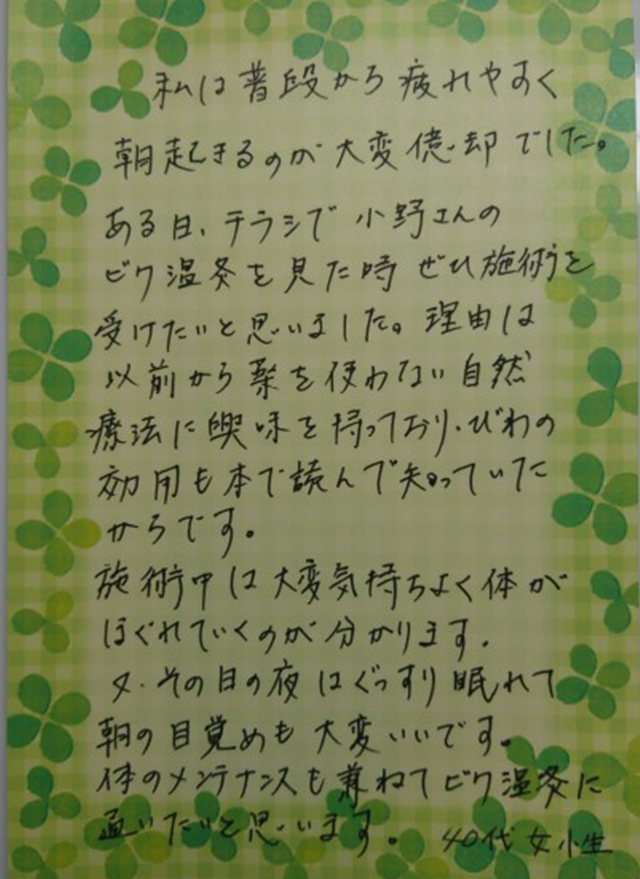 私は普段から疲れやすく
朝起きるのが大変億却でした。
ある日、チラシで小野さんの
ビワ温灸を見た時ぜひ施術を
受けたいと思いました。理由は
以前から薬を使わない自然
療法に興味を持っており、びわの
効用も本で読んで知っていた
からです。
施術中は大変気持ちよく体が
ほぐれていくのが分かります。
又、その日の夜はぐっすり眠れて
朝の目覚めも大変いいです。
体のメンテナンスも兼ねてビワ温灸に
通いたいと思います。 40代 女小生